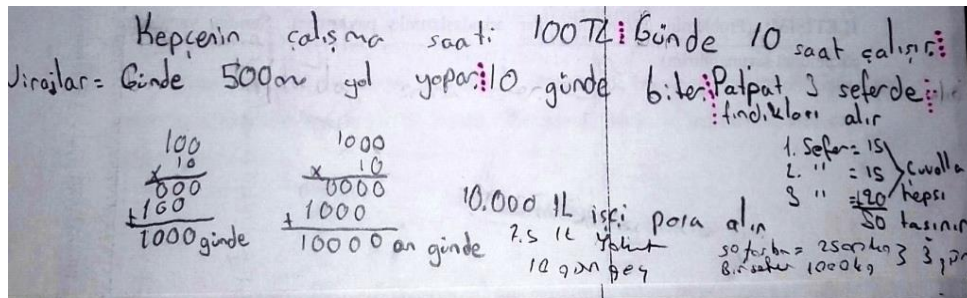 Kepçenin çalışma saati 100TL Günde 10 saat çalışır
Virajlar = Günde 500m yol yapar 10 günde biter Patpat 3 seferde
fındıkları alır
100
x 10
000
+100
1000 günde
1000
x 10
0000
+ 1000
10000 on günde
10.000 TL işçi para alır
1. Sefer = 15
2. " = 15
3 " = 20
50
Çuvalla
hepsi
taşınır
= 2500kg 3
1000kg